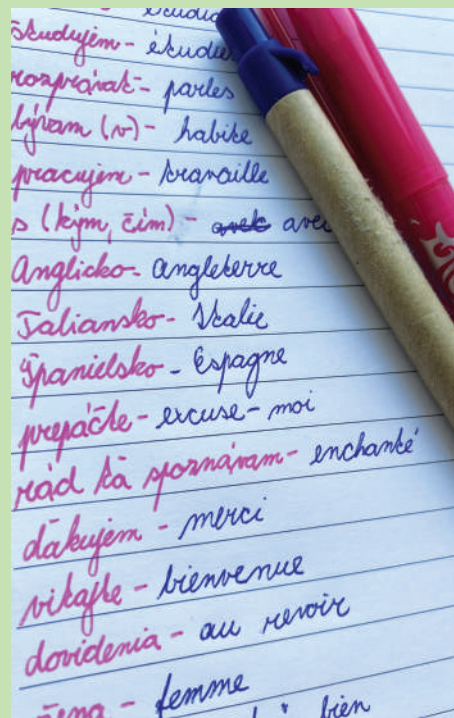 študujem - étudie
rozprávať - parles
bývam (v) - habite
pracujem - travaille
s (kým, čím) - avek avec
Anglicko - Angleterre
Taliansko - Italie
Španielsko - Espagne
prepáčte - excuse-moi
rád ťa spoznávam - enchanté
ďakujem - merci
vitajte - bienvenue
dovidenia - au revoir
žena - femme
bien